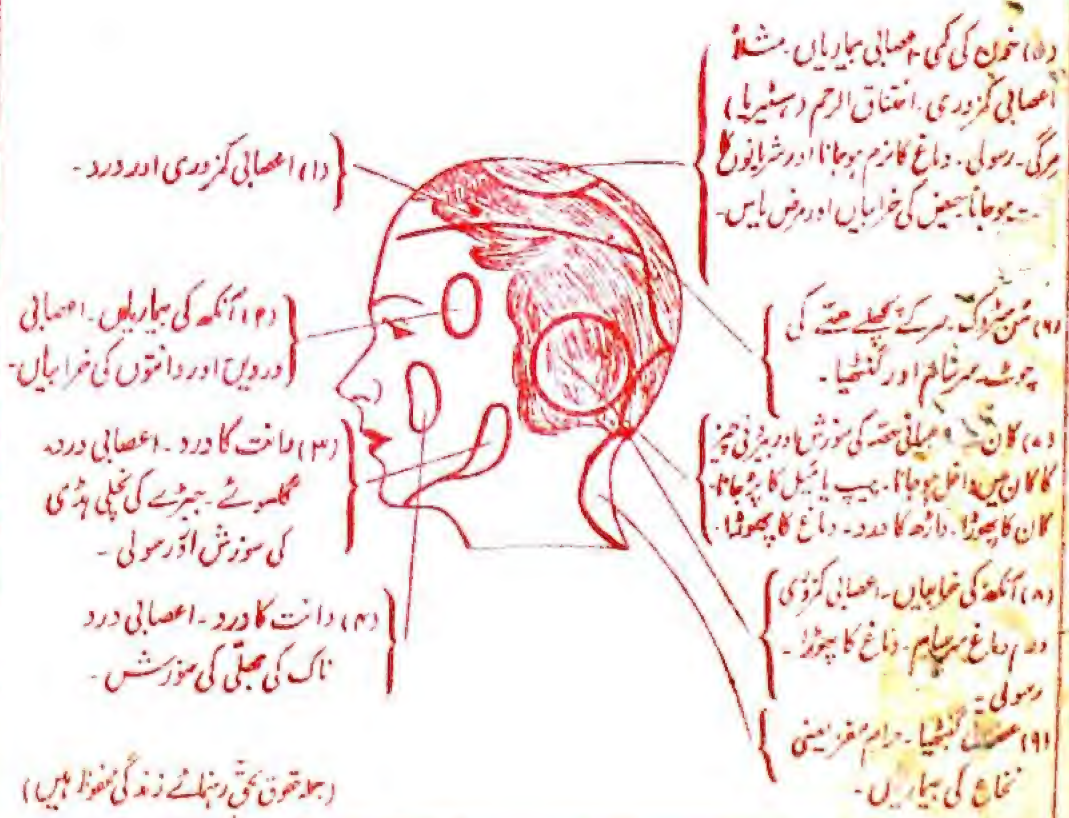 (۱) اعصابی کمزوری اور درد۔
(۲) آنکھ کی بیماریاں۔ اعصابی
دردیں اور دانتوں کی خرابیاں۔
(۳) دانت کا درد۔ اعصابی درد۔
گلسوئے۔ جبڑے کی نچلی ہڈی
کی سوزش اور رسولی۔
(۴) دانت کا درد۔ اعصابی درد
ناک کی جھلّی کی سوزش۔
(۵) خون کی کمی۔ اعصابی بیماریاں۔ مثلاً
اعصابی کمزوری۔ اختناق الرحم (ہسٹیریا)
مرگی۔ رسولی۔ دماغ کا نرم ہوجانا اور شریانوں کا
ہوجانا حیض کی خرابیاں اور مرض یاس۔
(۶) سن سٹروک۔ سر کے پچھلے حصّے کی
چوٹ اور گنٹھیا۔
کان حصّہ کی سوزش اور بیرونی چیز
کا کان میں داخل ہوجانا۔ پیپ یا تیل کا پڑجانا۔
کان کا پھوڑا۔ داڑھ کا درد۔ دماغ کا پھوڑا۔
(۸) آنکھ کی خرابیاں۔ اعصابی کمزوری
دماغ سرسام۔ دماغ کا پھوڑا۔
رسولی۔
(۹) گنٹھیا۔ حرام مغز یعنی
نخاع کی بیماریاں۔
(جملہ حقوق بحق رہنمائے زندگی محفوظ ہیں)